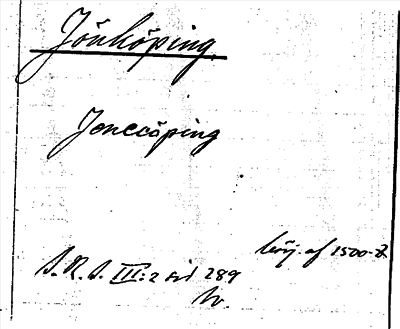 Jönköping.
Jonecöping
börj. af 1500-t.
S. R. S. III:2 sid 289